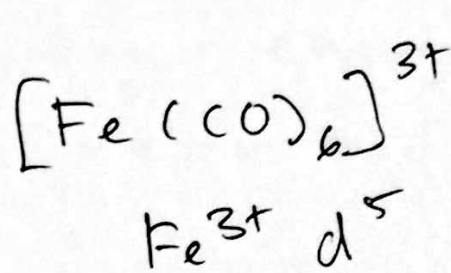 [Fe(CO)₆]³⁺
Fe³⁺ d⁵